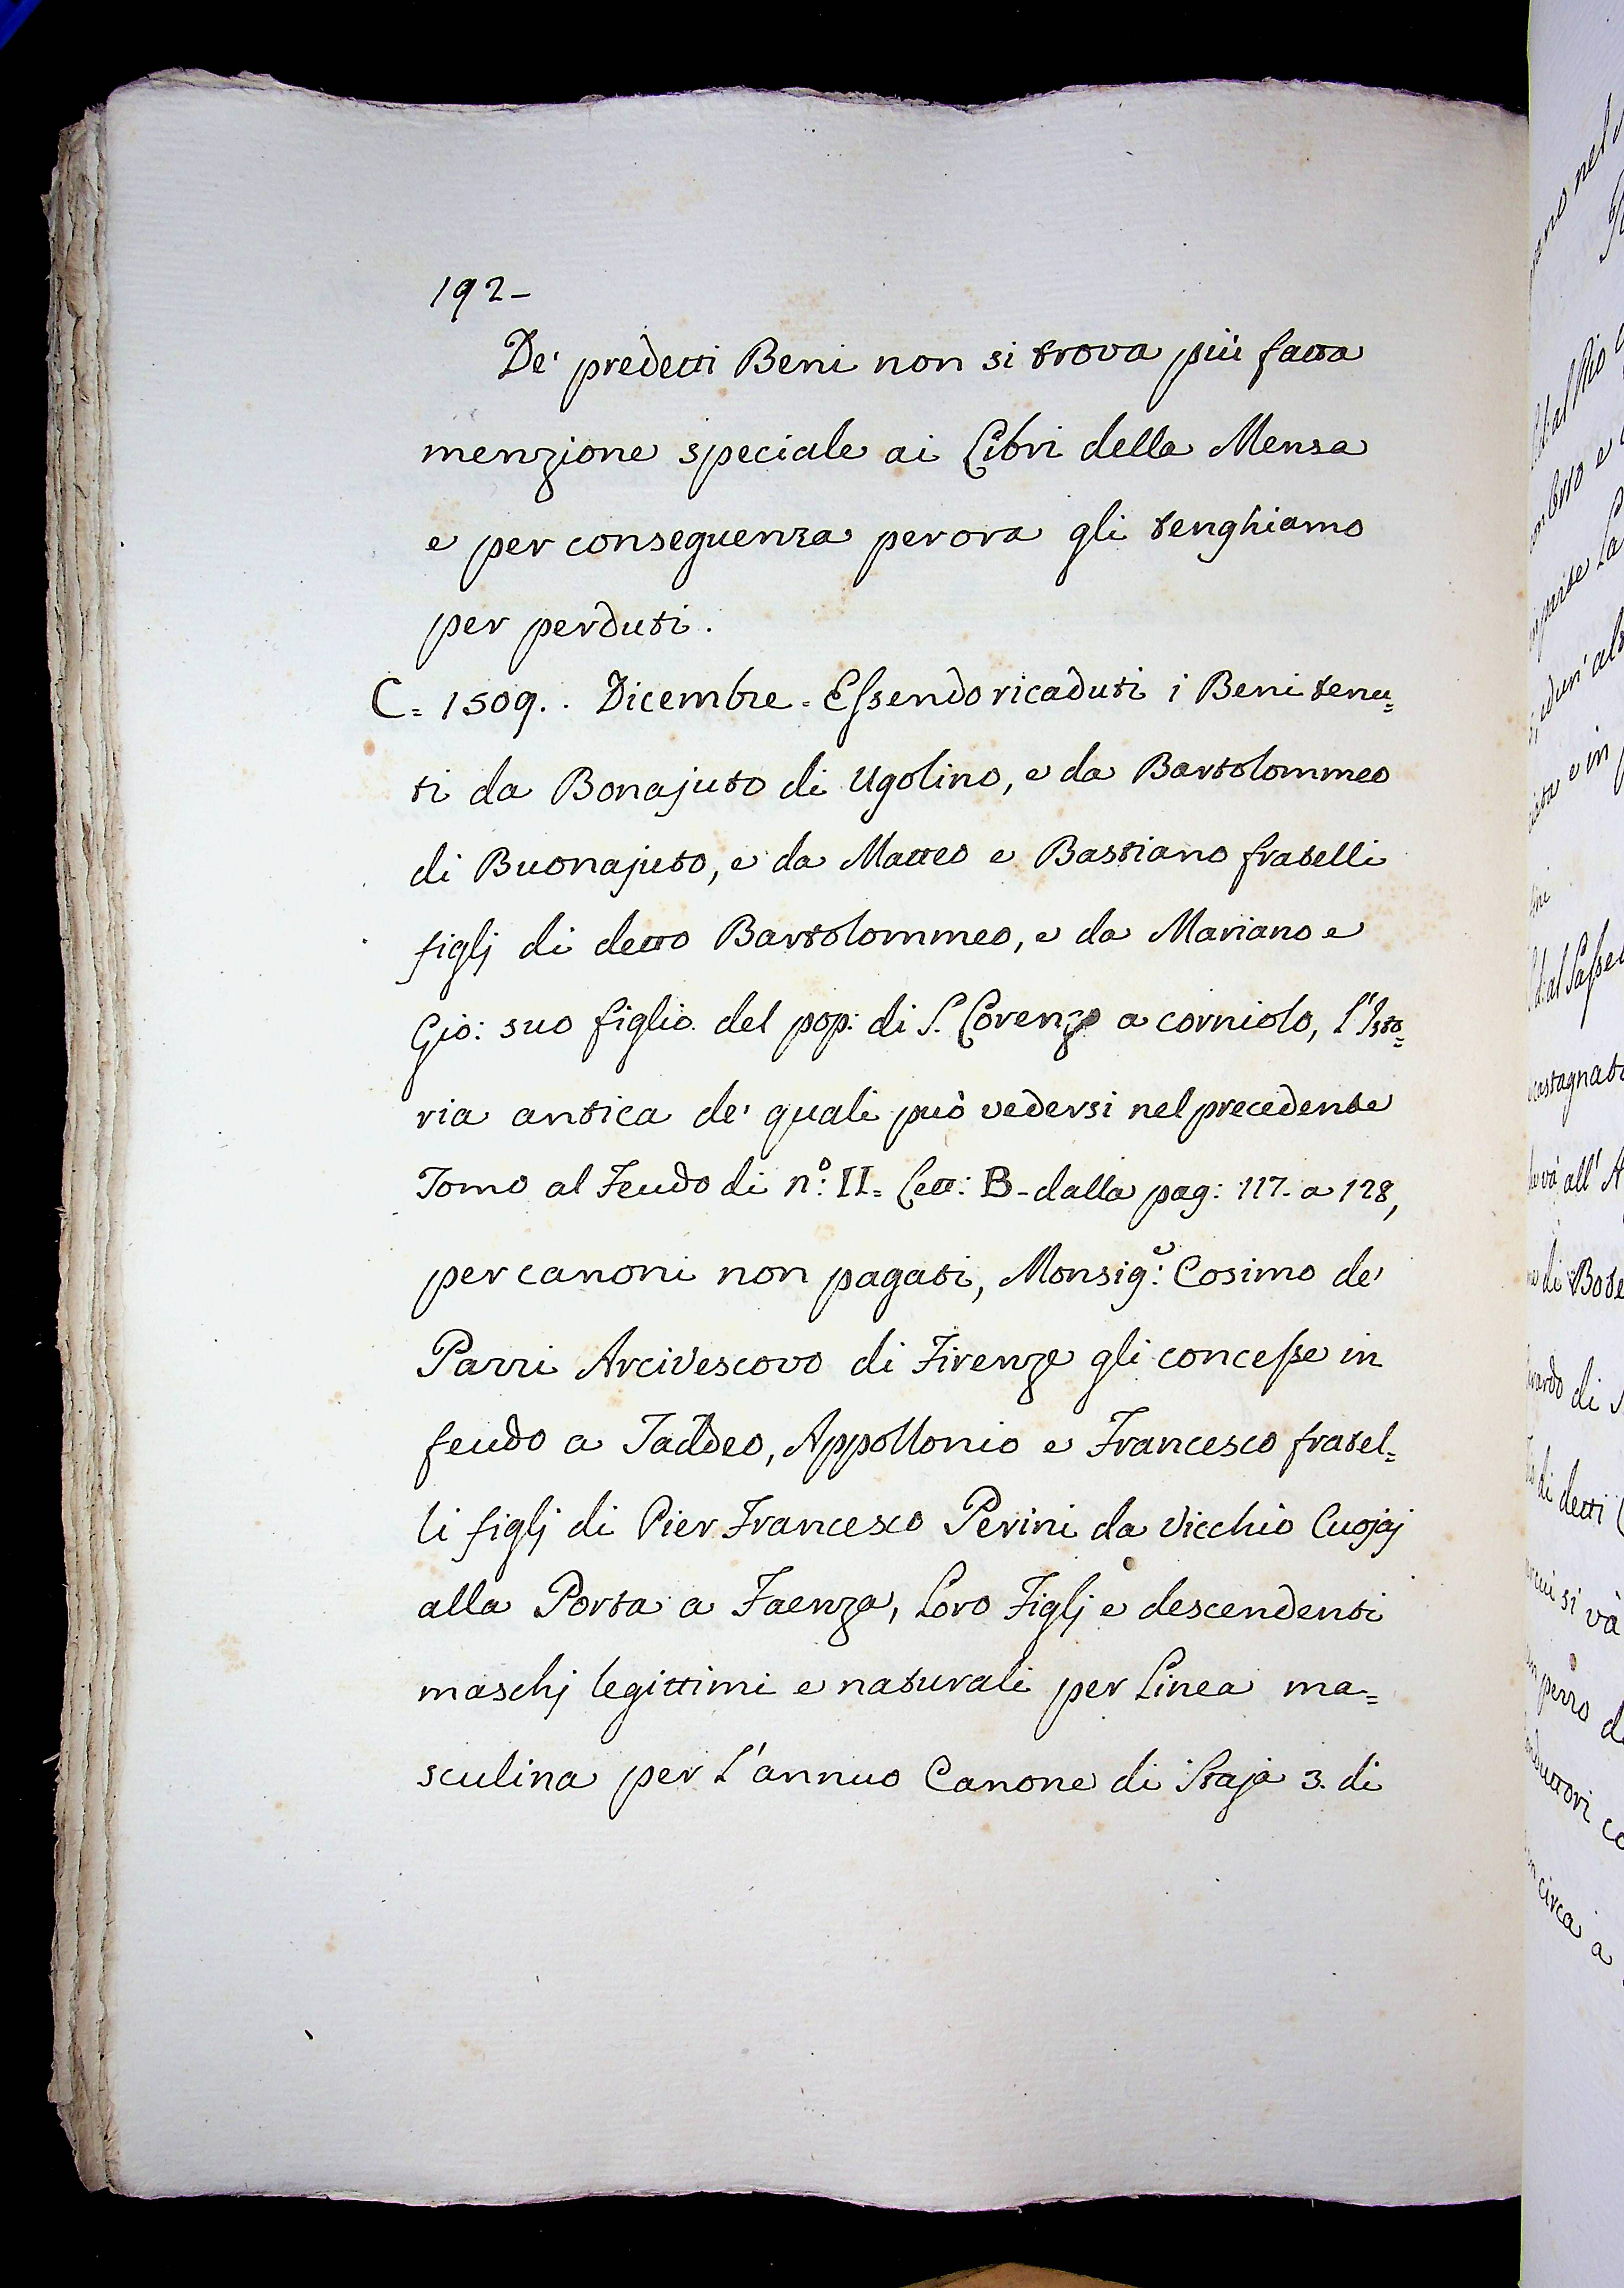 192-
De' predetti Beni non si trova più fatta
menzione speciale ai Libri della Mensa
e per conseguenza perora gli tenghiamo
per perduti.
C= 1509. . Dicembre. Essendo ricaduti i Beni tenu=
ti da Bonajuto di Ugolino, e da Bartolommeo
di Buonajuto, e da Matteo e Bastiano fratelli
figlj di detto Bartolommeo, e da Mariano e
Gio: suo figlio del pop: di S. Lorenzo a corniolo, l'Isto=
ria antica de' quali può vedersi nel precedente
Tomo al Feudo di n.º: II= Lett: B- dalla pag: 117. a 128,
per canoni non pagati, Monsig.e: Cosimo de'
Pazzi Arcivescovo di Firenze gli concesse in
feudo a Taddeo, Appollonio e Francesco fratel=
li figlj di Pier Francesco Perini da Vicchio Cuojaj
alla Porta a Faenza, Loro Figlj e descendenti
maschj legittimi e naturali per Linea ma=
sculina per L'annuo Canone di Staja 3. di